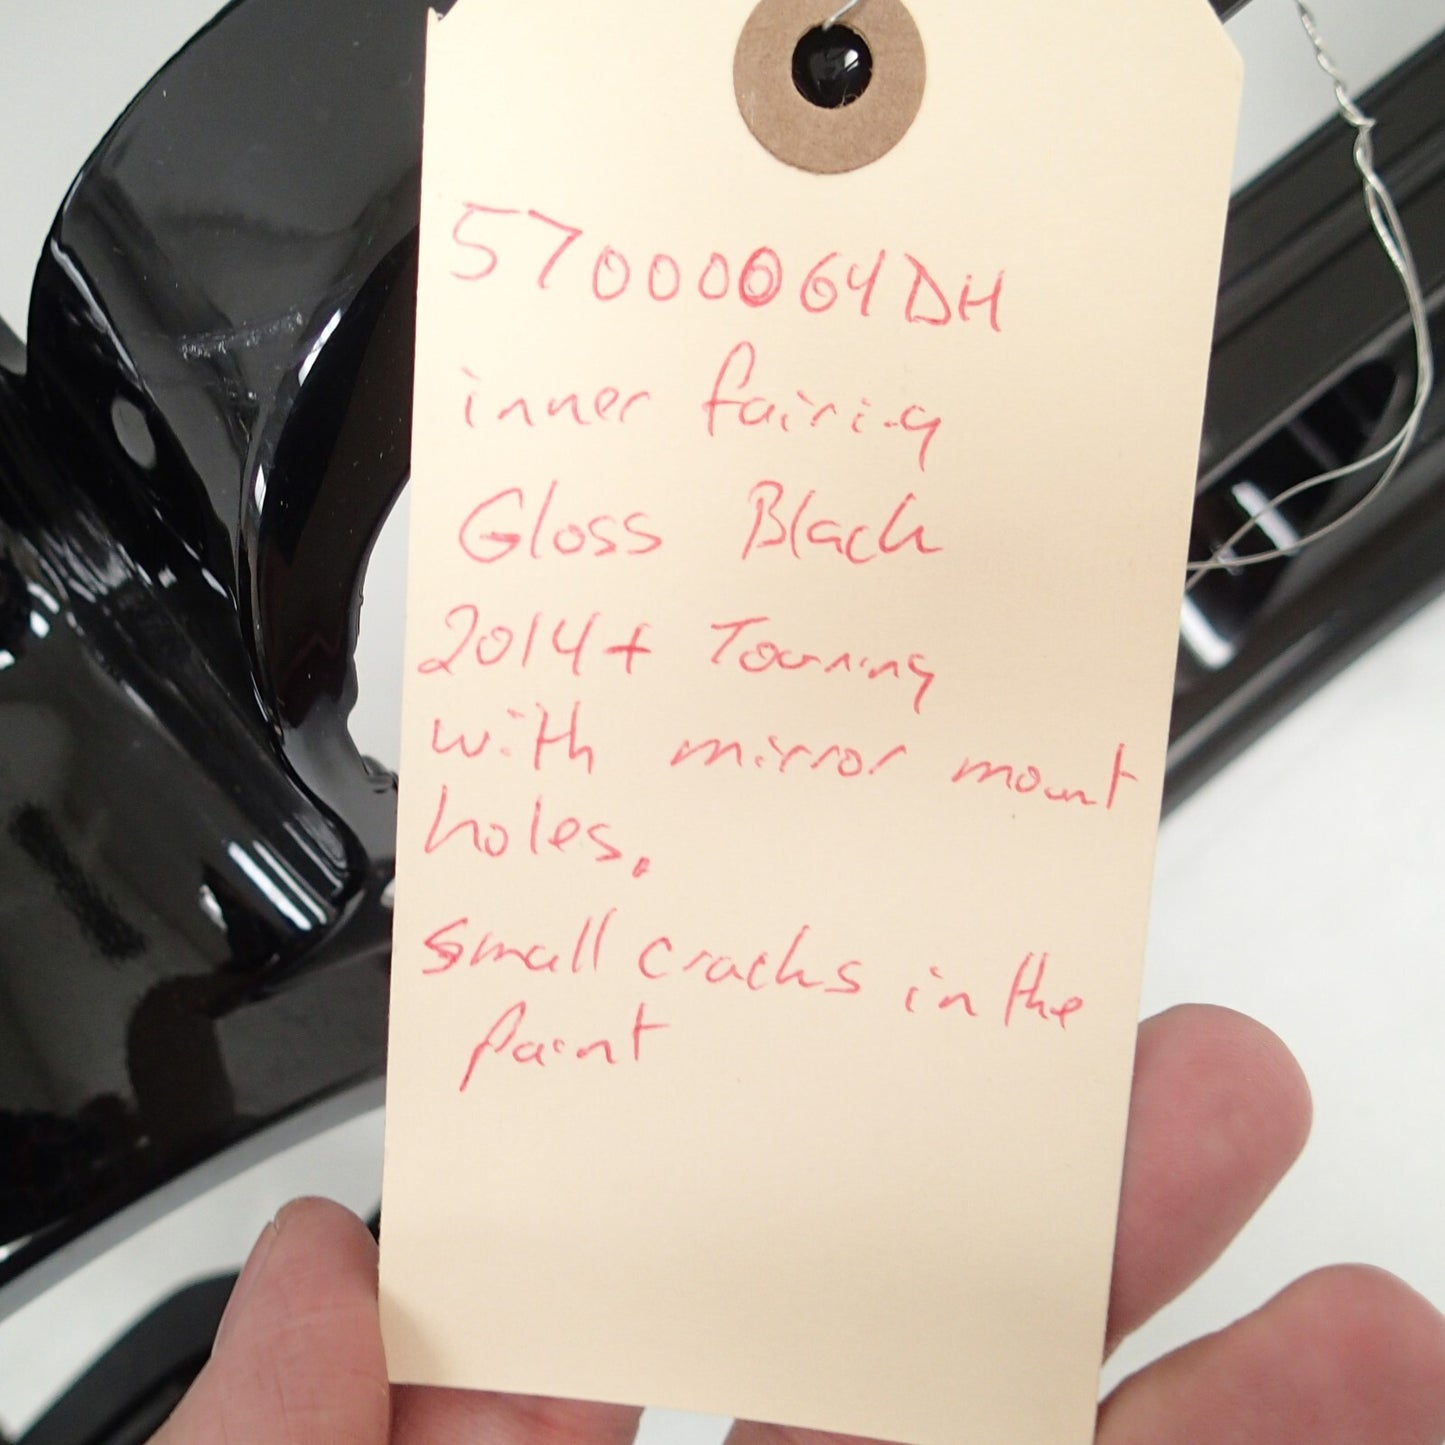 57000064DH
inner fairing
Gloss Black
2014+ Touring
with mirror mount
holes.
small cracks in the
paint